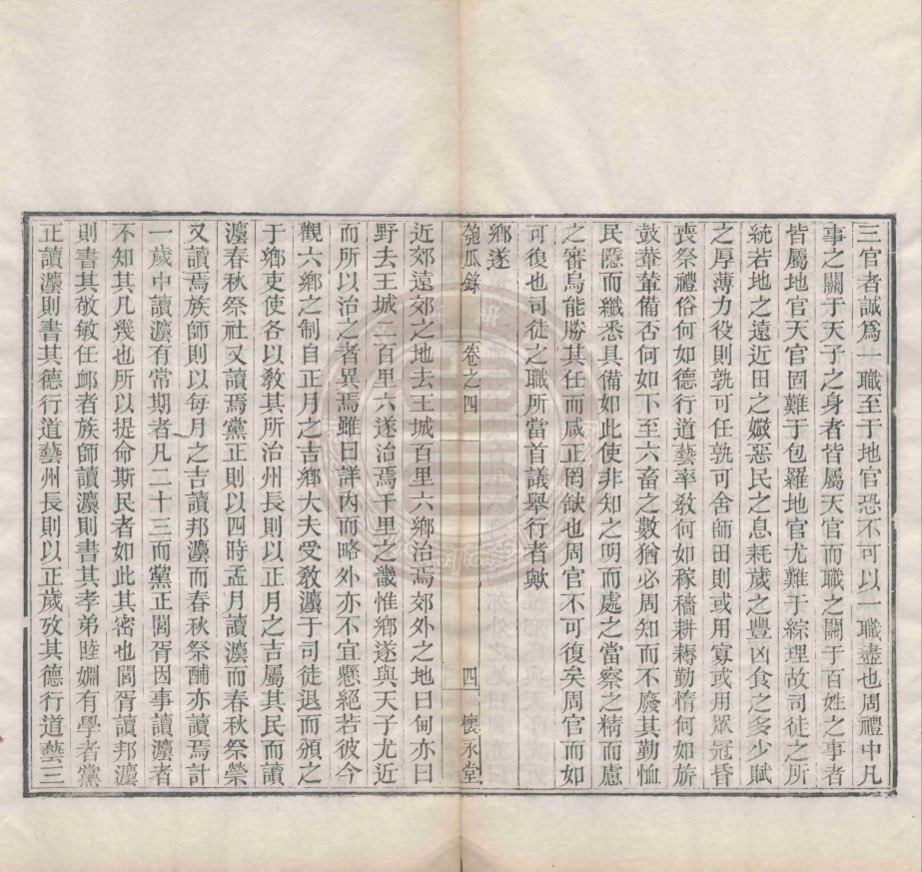 三官者誠爲一職至于地官恐不可以一職盡也周禮中凡
事之關于天子之身者皆屬天官而職之關于百姓之事者
皆屬地官天官固難于包羅地官尤難于綜理故司徒之所
統若地之遠近田之媺惡民之息耗歲之豐凶食之多少賦
之厚薄力役則孰可任孰可舍師田則或用寡或用眾冠昏
喪祭禮俗何如德行道藝率教何如稼穡耕耨勤惰何如旂
鼓輂輦備否何如下至六畜之數猶必周知而不廢其勤恤
民隱而纖悉具備如此使非知之明而處之當察之精而慮
之審烏能勝其任而咸正罔缺也周官不可復矣周官而如
可復也司徒之職所當首議舉行者歟
鄉遂
匏瓜錄 卷之四 四 懷永堂
近郊遠郊之地去王城百里六鄉治焉郊外之地曰甸亦曰
野去王城二百里六遂治焉千里之畿惟鄉遂與天子尤近
而所以治之者異焉雖曰詳內而略外亦不宜懸絕若彼今
觀六鄉之制自正月之吉鄉大夫受教灋于司徒退而頒之
于鄉吏使各以教其所治州長則以正月之吉屬其民而讀
灋春秋祭社又讀焉黨正則以四時孟月讀灋而春秋祭禜
又讀焉族師則以每月之吉讀邦灋而春秋祭酺亦讀焉計
一歲中讀灋有常期者凡二十三而黨正閭胥因事讀灋者
不知其凡幾也所以提命斯民者如此其密也閭胥讀邦灋
則書其敬敏任卹者族師讀灋則書其孝弟睦婣有學者黨
正讀灋則書其德行道藝州長則以正歲攷其德行道藝三